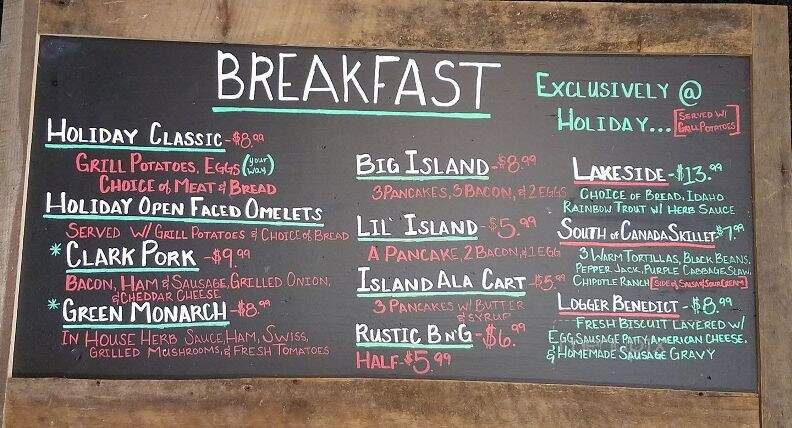 BREAKFAST
HOLIDAY CLASSIC-$8.99
GRILL POTATOES, EGGS (your way)
CHOICE of MEAT & BREAD
HOLIDAY OPEN FACED OMELETS
SERVED W/ GRILL POTATOES & CHOICE of BREAD
*CLARK PORK -$9.99
BACON, HAM & SAUSAGE, GRILLED ONION,
& CHEDDAR CHEESE
*GREEN MONARCH-$8.99
IN HOUSE HERB SAUCE, HAM, SWISS,
GRILLED MUSHROOMS, & FRESH TOMATOES
BIG ISLAND-$8.99
3 PANCAKES, 3 BACON, & 2 EGGS
LIL' ISLAND-$5.99
A PANCAKE, 2 BACON, & 1 EGG
ISLAND ALA CART-$5.99
3 PANCAKES W/ BUTTER
& SYRUP
RUSTIC B N' G-$6.99
HALF-$5.99
EXCLUSIVELY @
HOLIDAY... [SERVED W/
GRILL POTATOES]
LAKESIDE-$13.99
CHOICE of BREAD, IDAHO
RAINBOW TROUT W/ HERB SAUCE
SOUTH of CANADA SKILLET-$7.99
3 WARM TORTILLAS, BLACK BEANS,
PEPPER JACK, PURPLE CABBAGE SLAW,
CHIPOTLE RANCH [SIDE of SALSA & SOUR CREAM]
LOGGER BENEDICT-$8.99
FRESH BISCUIT LAYERED W/
EGG, SAUSAGE PATTY, AMERICAN CHEESE,
& HOMEMADE SAUSAGE GRAVY